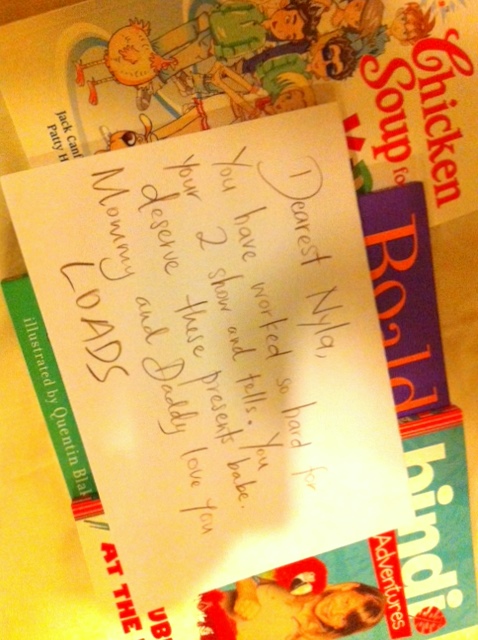 Chicken
Soup fo
Jack Canf
Patty H
Dearest Nyla,
You have worked so hard for
your 2 show and tells. You
deserve these presents babe.
Mommy and Daddy love you
LOADS
Roald
illustrated by Quentin Bla
hindi
Adventures
UB
AT THE